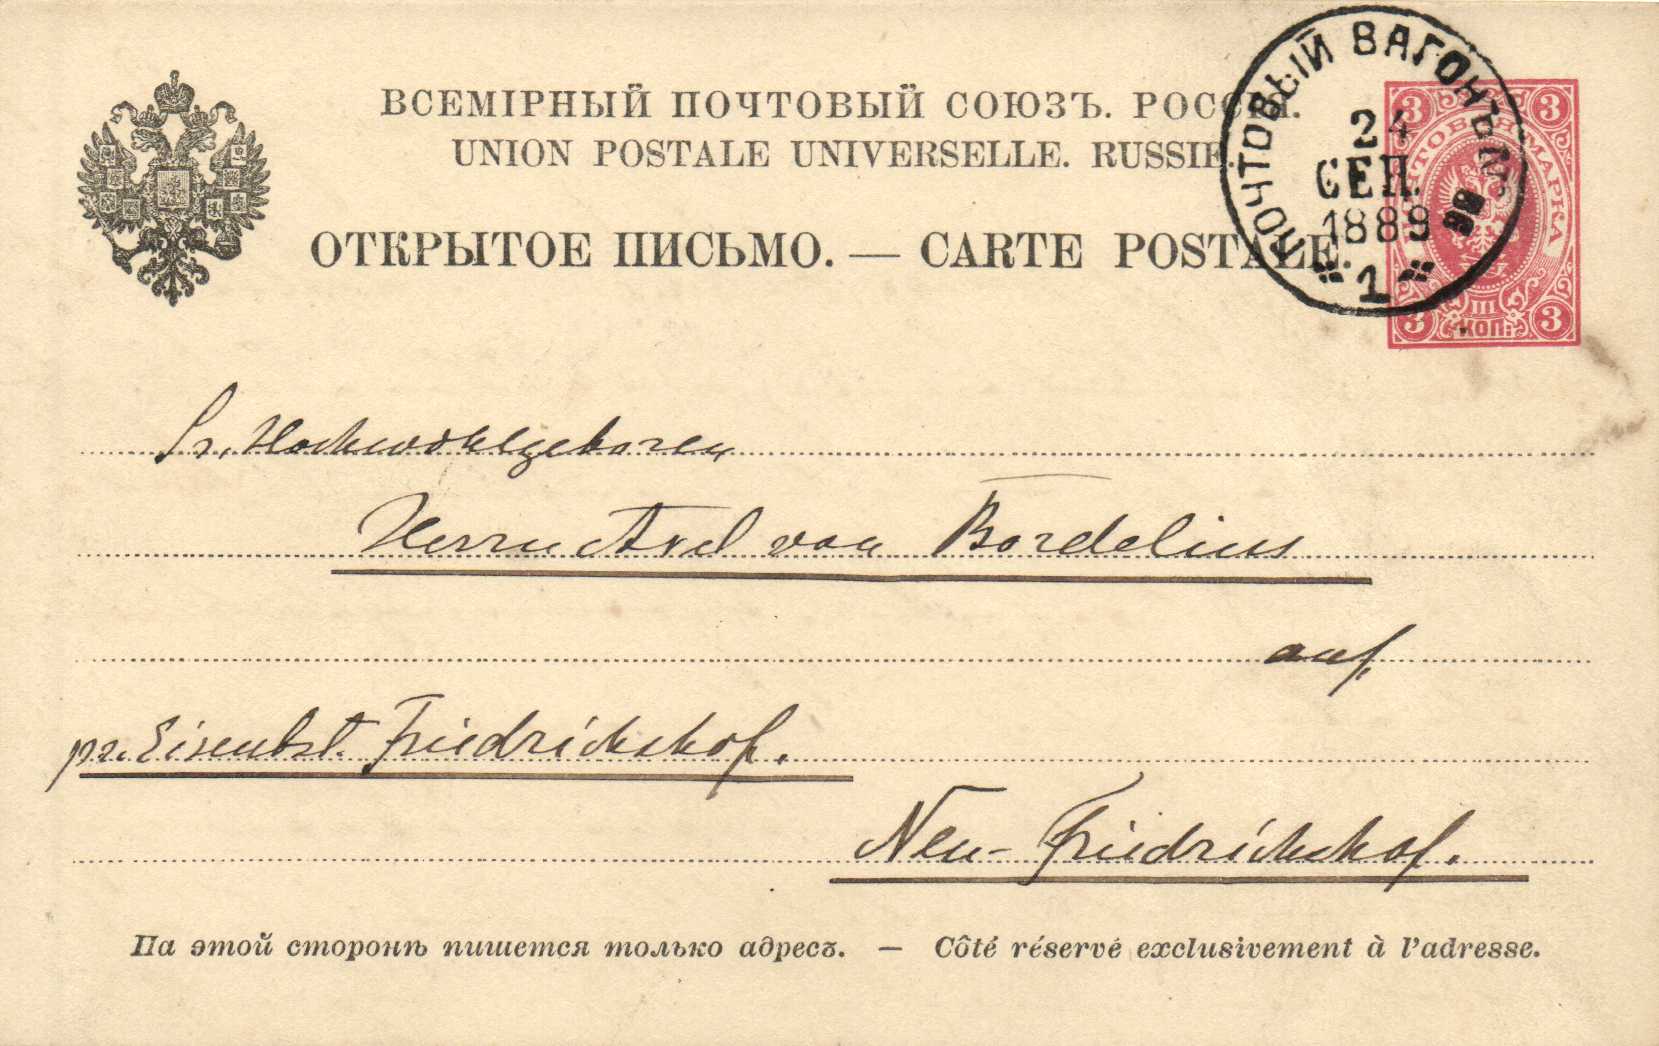 ВСЕМІРНЫЙ ПОЧТОВЫЙ СОЮЗЪ. РОССІЯ.
UNION POSTALE UNIVERSELLE. RUSSIE.
ОТКРЫТОЕ ПИСЬМО. — CARTE POSTALE.
ПОЧТОВЫЙ ВАГОНЪ №
24
СЕП.
1889
1
3 3
ПОЧТОВАЯ МАРКА
III
3 КОП. 3
Sr. Hochwohlgeboren
Herrn Axel von Bordelius
auf
pr. Eisenbst. Friedrichshof.
Neu-Friedrichshof.
На этой сторонѣ пишется только адресъ. — Côté réservé exclusivement à l'adresse.